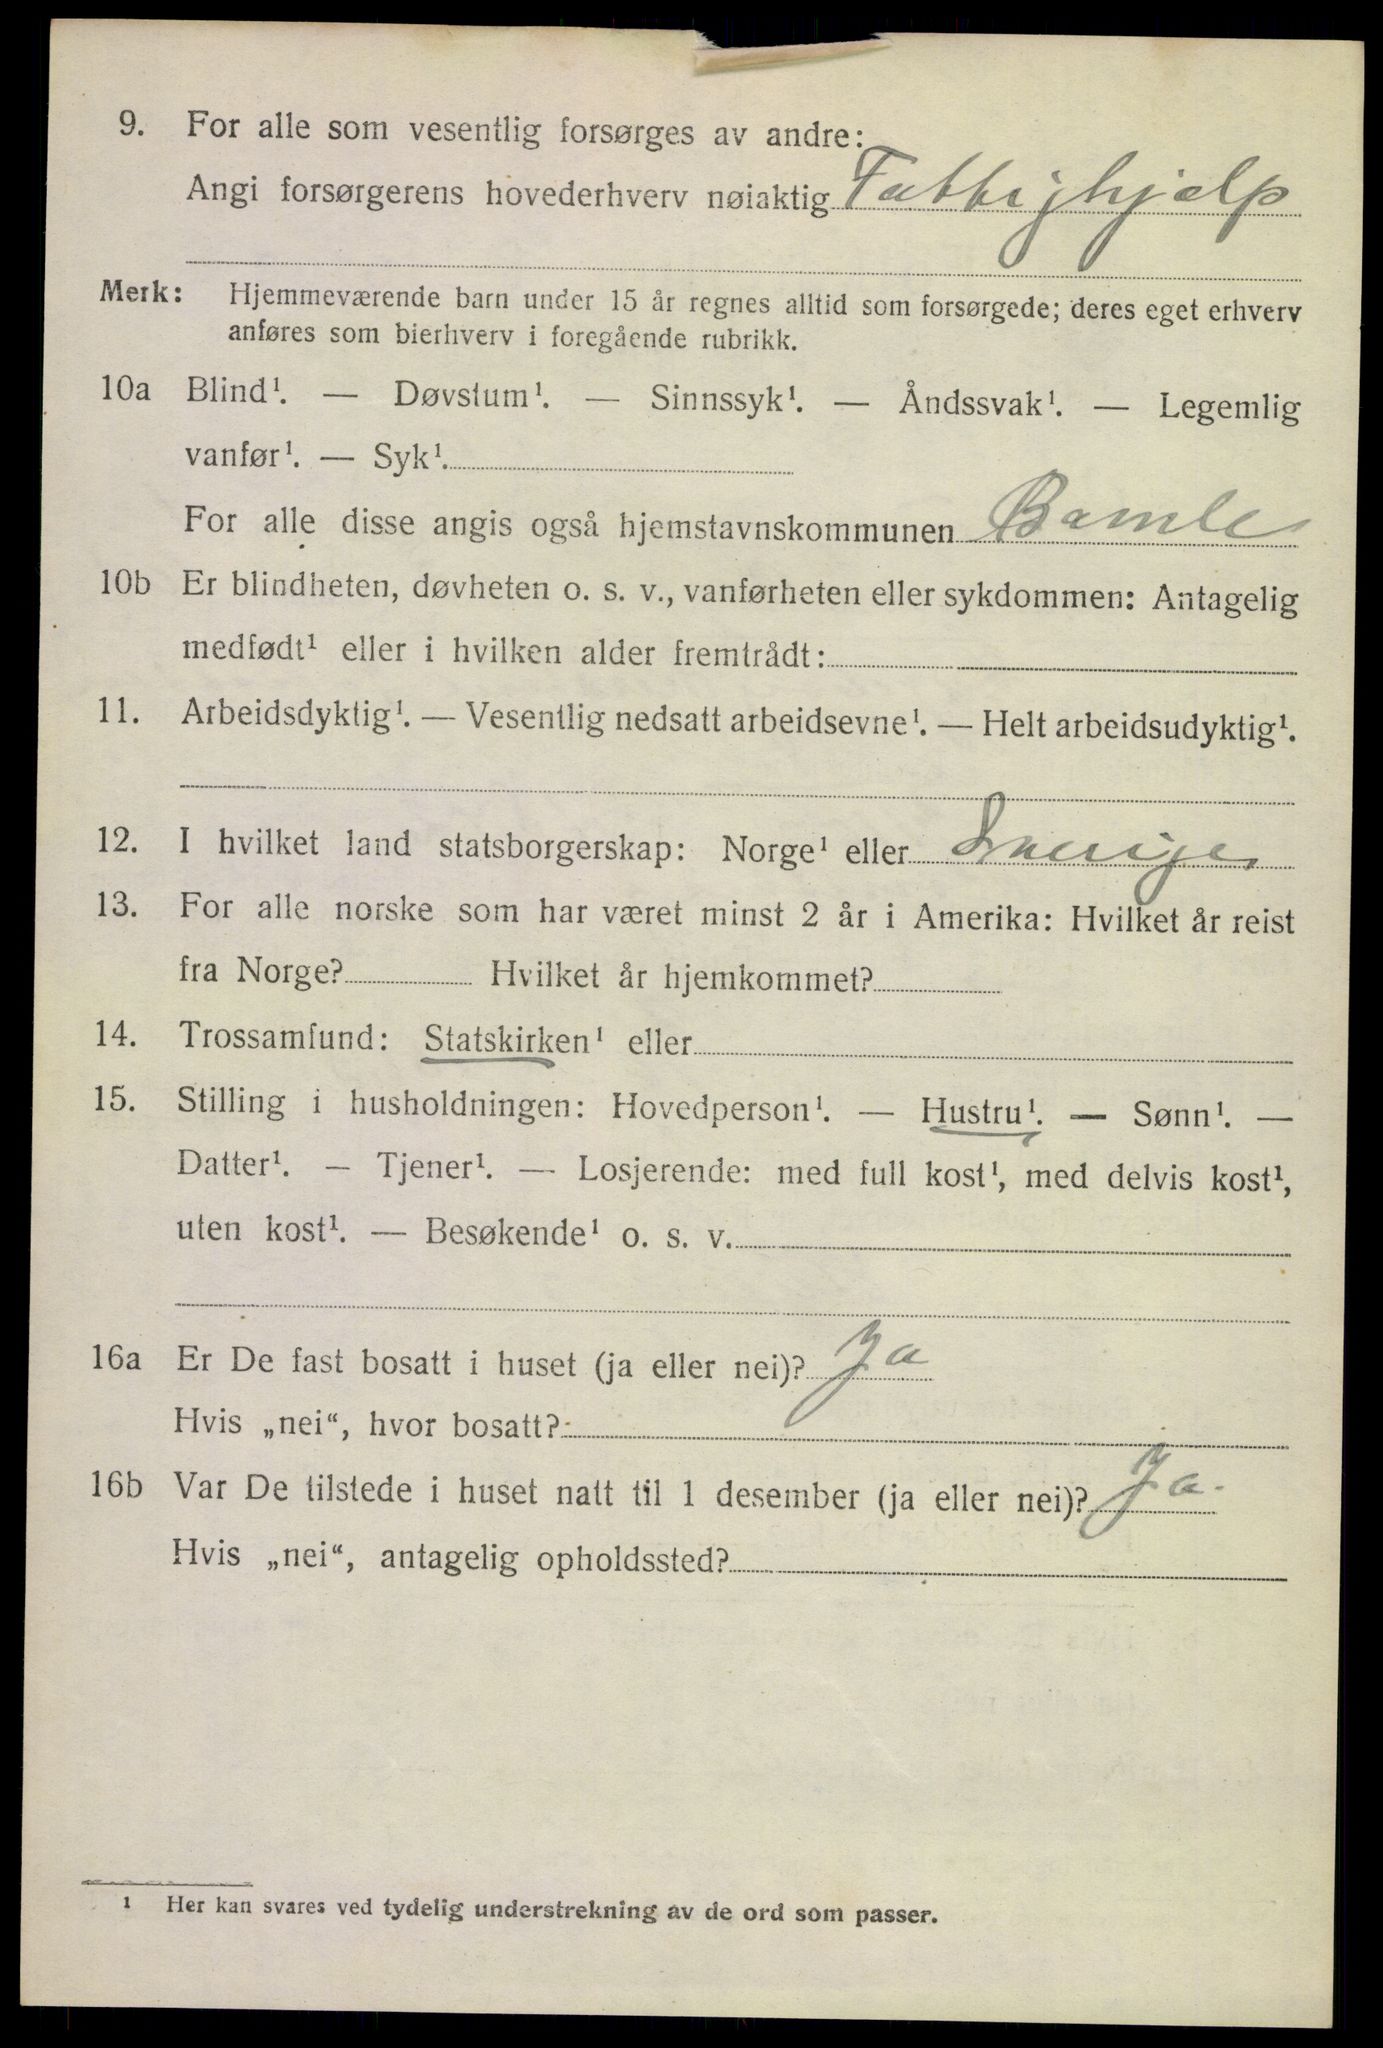 9. For alle som vesentlig forsørges av andre:
Angi forsørgerens hovederhverv nøiaktig Fattighjælp
Merk: Hjemmeværende barn under 15 år regnes alltid som forsørgede; deres eget erhverv
anføres som bierhverv i foregående rubrikk.
10a Blind¹. — Døvstum¹. — Sinnssyk¹. — Åndssvak¹. — Legemlig
vanfør¹. — Syk¹.
For alle disse angis også hjemstavnskommunen Bamle
10b Er blindheten, døvheten o. s. v., vanførheten eller sykdommen: Antagelig
medfødt¹ eller i hvilken alder fremtrådt:
11. Arbeidsdyktig¹. — Vesentlig nedsatt arbeidsevne¹. — Helt arbeidsudyktig¹.
12. I hvilket land statsborgerskap: Norge¹ eller Sverige
13. For alle norske som har været minst 2 år i Amerika: Hvilket år reist
fra Norge? Hvilket år hjemkommet?
14. Trossamfund: Statskirken¹ eller
15. Stilling i husholdningen: Hovedperson¹. — Hustru¹. — Sønn¹. —
Datter¹. — Tjener¹. — Losjerende: med full kost¹, med delvis kost¹,
uten kost¹. — Besøkende¹ o. s. v.
16a Er De fast bosatt i huset (ja eller nei)? Ja
Hvis „nei“, hvor bosatt?
16b Var De tilstede i huset natt til 1 desember (ja eller nei)? Ja.
Hvis „nei“, antagelig opholdssted?
¹ Her kan svares ved tydelig understrekning av de ord som passer.